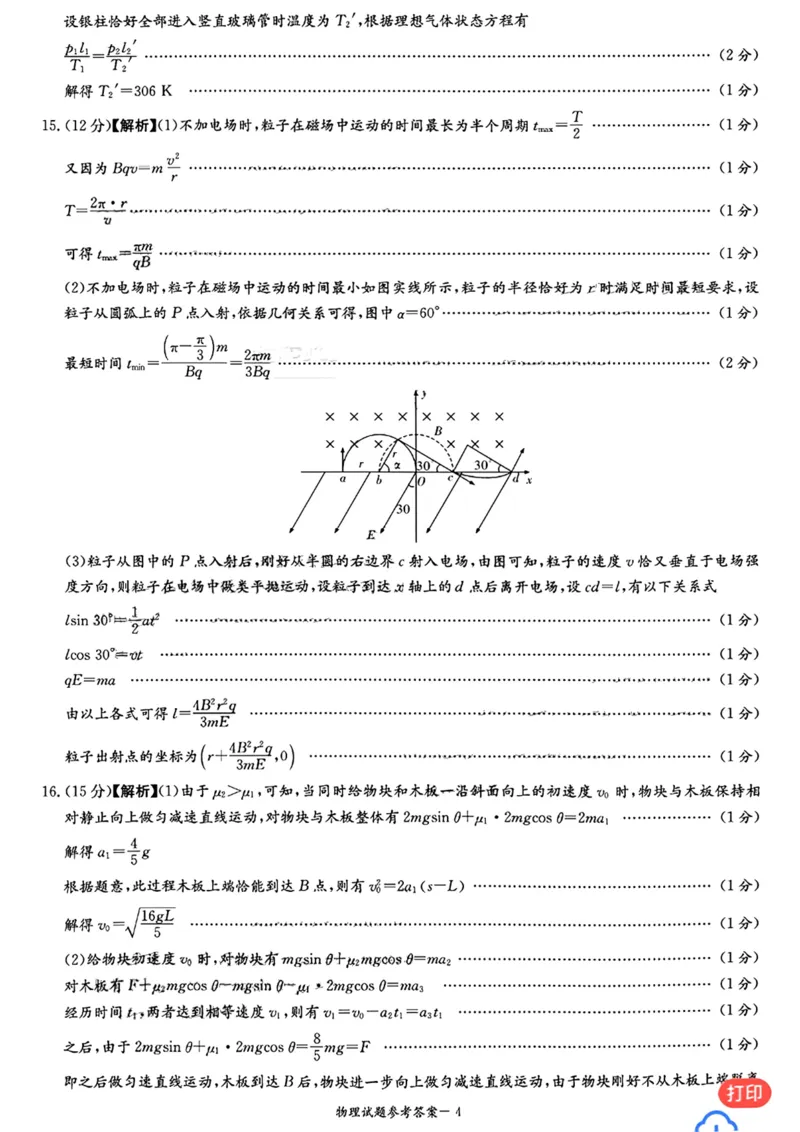 设银柱恰好全部进入竖直玻璃管时温度为 T₂′,根据理想气体状态方程有
p₁l₁/T₁=p₂l₂′/T₂′ ……(2分)
解得 T₂′=306 K ……(1分)
15.(12分)【解析】(1)不加电场时,粒子在磁场中运动的时间最长为半个周期 tmax=T/2 ……(1分)
又因为 Bqv=m v²/r ……(1分)
T=2π·r/v ……(1分)
可得 tmax=πm/qB ……(1分)
(2)不加电场时,粒子在磁场中运动的时间最小如图实线所示,粒子的半径恰好为 r 时满足时间最短要求,设
粒子从圆弧上的 P 点入射,依据几何关系可得,图中 α=60° ……(1分)
最短时间 tmin=(π-π/3)m/Bq=2πm/3Bq ……(2分)
y
× × × × × × × ×
B
× × × × × ×
r
r α 30 30
a b O c d x
30
E
(3)粒子从图中的 P 点入射后,刚好从半圆的右边界 c 射入电场,由图可知,粒子的速度 v 恰又垂直于电场强
度方向,则粒子在电场中做类平抛运动,设粒子到达 x 轴上的 d 点后离开电场,设 cd=l,有以下关系式
lsin 30°=1/2at² ……(1分)
lcos 30°=vt ……(1分)
qE=ma ……(1分)
由以上各式可得 l=4B²r²q/3mE ……(1分)
粒子出射点的坐标为(r+4B²r²q/3mE,0) ……(1分)
16.(15分)【解析】(1)由于 μ₂>μ₁,可知,当同时给物块和木板一沿斜面向上的初速度 v₀ 时,物块与木板保持相
对静止向上做匀减速直线运动,对物块与木板整体有 2mgsin θ+μ₁·2mgcos θ=2ma₁ ……(1分)
解得 a₁=4/5g
根据题意,此过程木板上端恰能到达 B 点,则有 v₀²=2a₁(s-L) ……(1分)
解得 v₀=√(16gL/5) ……(1分)
(2)给物块初速度 v₀ 时,对物块有 mgsin θ+μ₂mgcos θ=ma₂ ……(1分)
对木板有 F+μ₂mgcos θ-mgsin θ-μ₁·2mgcos θ=ma₃ ……(1分)
经历时间 t₁,两者达到相等速度 v₁,则有 v₁=v₀-a₂t₁=a₃t₁ ……(1分)
之后,由于 2mgsin θ+μ₁·2mgcos θ=8/5mg=F ……(1分)
即之后做匀速直线运动,木板到达 B 后,物块进一步向上做匀减速直线运动,由于物块刚好不从木板上端
打印
物理试题参考答案-4